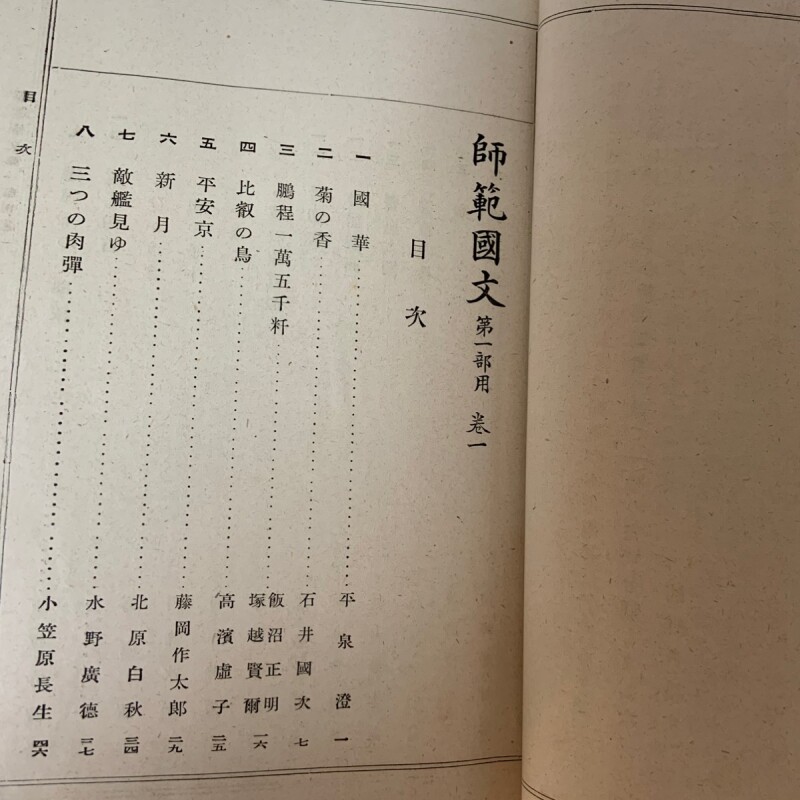 師範國文 第一部用 卷一
目次
一 國華 平泉澄 一
二 菊の香 石井國次 七
三 鵬程一萬五千粁 飯沼正明 塚越賢爾 一六
四 比叡の鳥 高濱虛子 二五
五 平安京 藤岡作太郎 二九
六 新月 北原白秋 三四
七 敵艦見ゆ 水野廣德 三七
八 三つの肉彈 小笠原長生 四六
目次